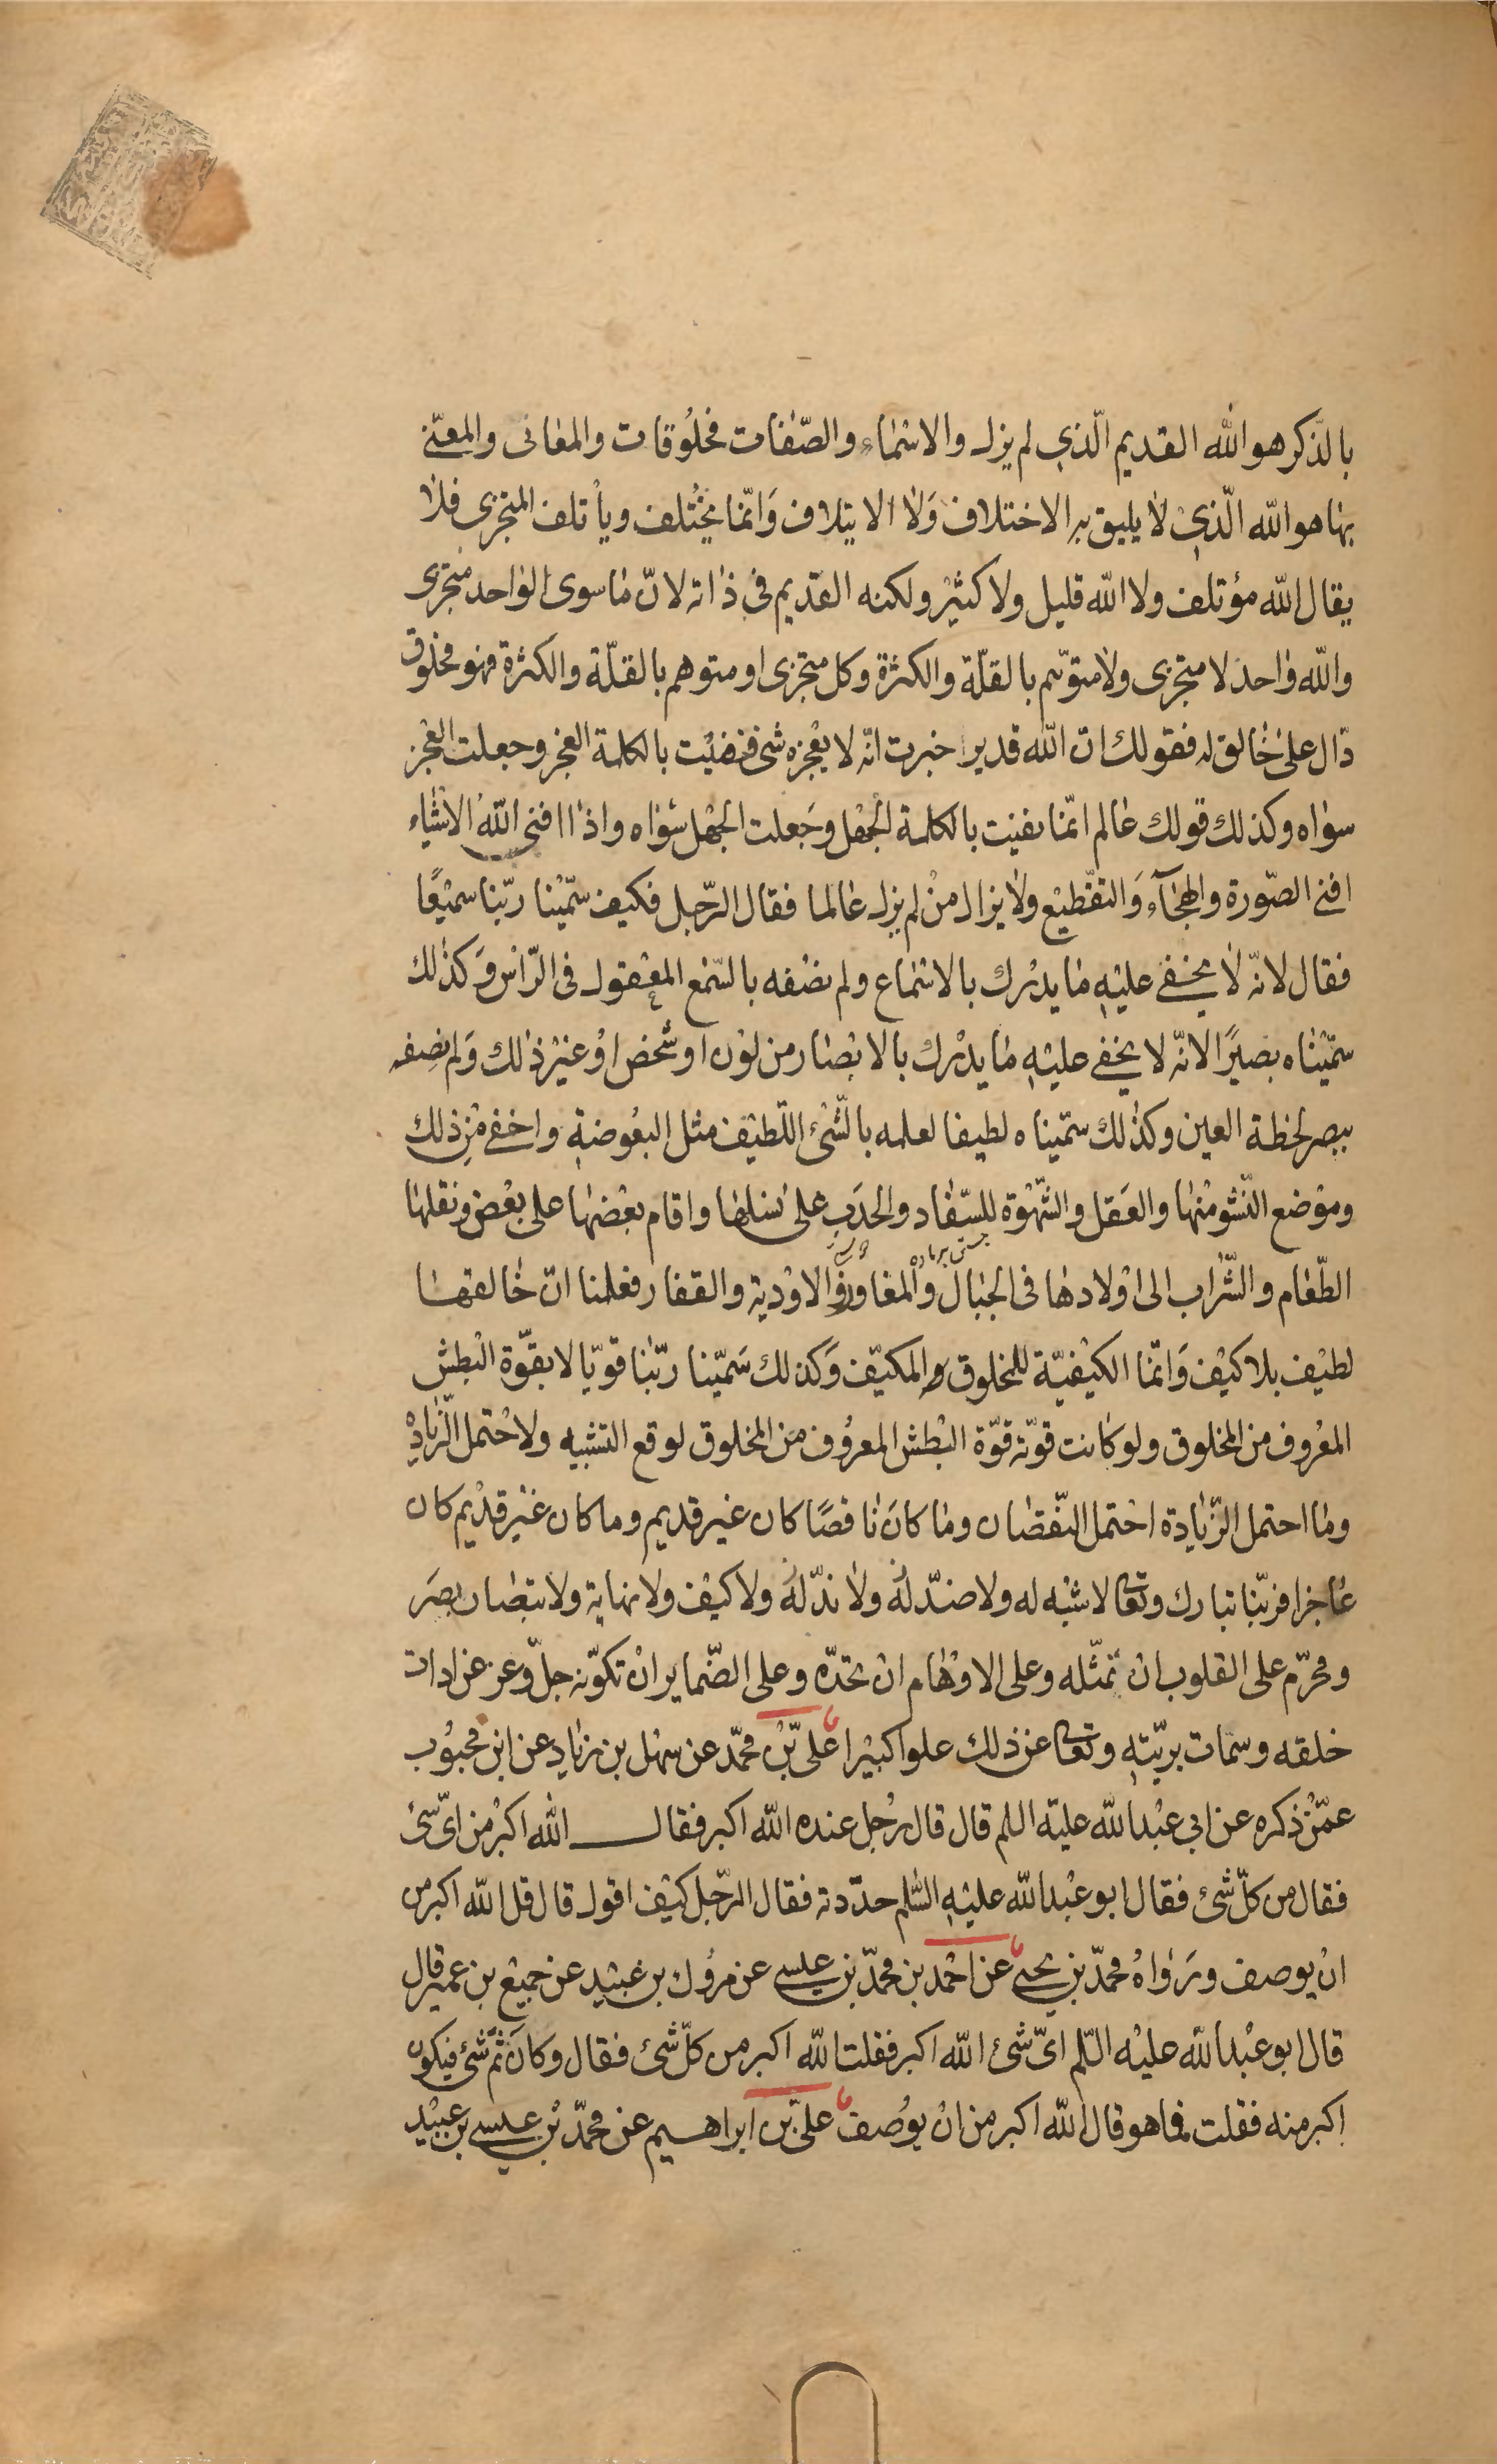 بالذّكر هو الله القديم الّذي لم يزل والاسماء والصّفات مخلوقات والمعانى والمعنّى
بها هو الله الّذي لا يليق به الاختلاف ولا الايتلاف وانّما يختلف ويأتلف المتجزى فلا
يقال الله مؤتلف ولا الله قليل ولا كثير ولكنه القديم في ذاته لانّ ما سوى الواحد متجزى
والله واحد لا متجزى ولا متوهّم بالقلّة والكثرة وكل متجزى او متوهم بالقلّة والكثرة فهو مخلوق
دّال على خالق له فقولك انّ الله قدير اخبرت انّه لا يعجزه شئ فنفيت بالكلمة العجز وجعلت العجز
سواه وكذلك قولك عالم انّما نفيت بالكلمة الجهل وجعلت الجهل سواه واذا افنى الله الاشياء
افنى الصّورة والهجاء والتقطيع ولا يزال من لم يزل عالما فقال الرّجل فكيف سمّينا ربّنا سميعًا
فقال لانّه لا يخفى عليه ما يدرك بالاسماع ولم نصفه بالسّمع المعقول فى الرّاس وكذلك
سمّيناه بصيرًا لانّه لا يخفى عليه ما يدرك بالابصار من لون او شخص او غير ذلك ولم نصفه
ببصر لحظة العين وكذلك سمّيناه لطيفا لعلمه بالشّئ اللّطيف مثل البعوضة واخفى من ذلك
وموضع النّشو منها والعقل والشّهوة للسّفاد والحدب على نسلها واقام بعضها على بعض ونقلها
الطّعام والشّراب الى اولادها فى الجبال والمفاوز والاودية والقفار فعلمنا انّ خالقها
لطيف بلا كيف وانّما الكيفيّة للمخلوق المكيّف وكذلك سمّينا ربّنا قويّا لا بقوّة البطش
المعروف من المخلوق ولو كانت قوّته قوّة البطش المعروف من المخلوق لوقع التشبيه ولاحتمل الزّيادة
وما احتمل الزّيادة احتمل النّقصان وما كان ناقصًا كان غير قديم وما كان غير قديم كان
عاجزا فربّنا تبارك وتعالى لا شبه له ولا ضدّ له ولا ندّ له ولا كيف ولا نهاية ولا تبصار بصر
ومحرّم على القلوب ان تمثّله وعلى الاوهام ان تحدّه وعلى الضّماير ان تكوّنه جلّ وعز عن ادات
خلقه وسمات بريّته وتعالى عن ذلك علوا كبيرا علىّ بن محمّد عن سهل بن زياد عن ابن محبوب
عمّن ذكره عن ابى عبد الله عليه السلم قال قال رجل عنده الله اكبر فقال الله اكبر من اىّ شئ
فقال من كلّ شئ فقال ابو عبد الله عليه السّلم حدّدته فقال الرّجل كيف اقول قال قل الله اكبر من
ان يوصف ورواه محمّد بن يحيى عن احمد بن محمّد بن عيسى عن مروك بن عبيد عن جميع بن عمير قال
قال ابو عبد الله عليه السّلم اىّ شئ الله اكبر فقلت الله اكبر من كلّ شئ فقال وكان ثمّ شئ فيكون
اكبر منه فقلت فما هو قال الله اكبر من ان يوصف علىّ بن ابراهيم عن محمّد بن عيسى بن عبيد